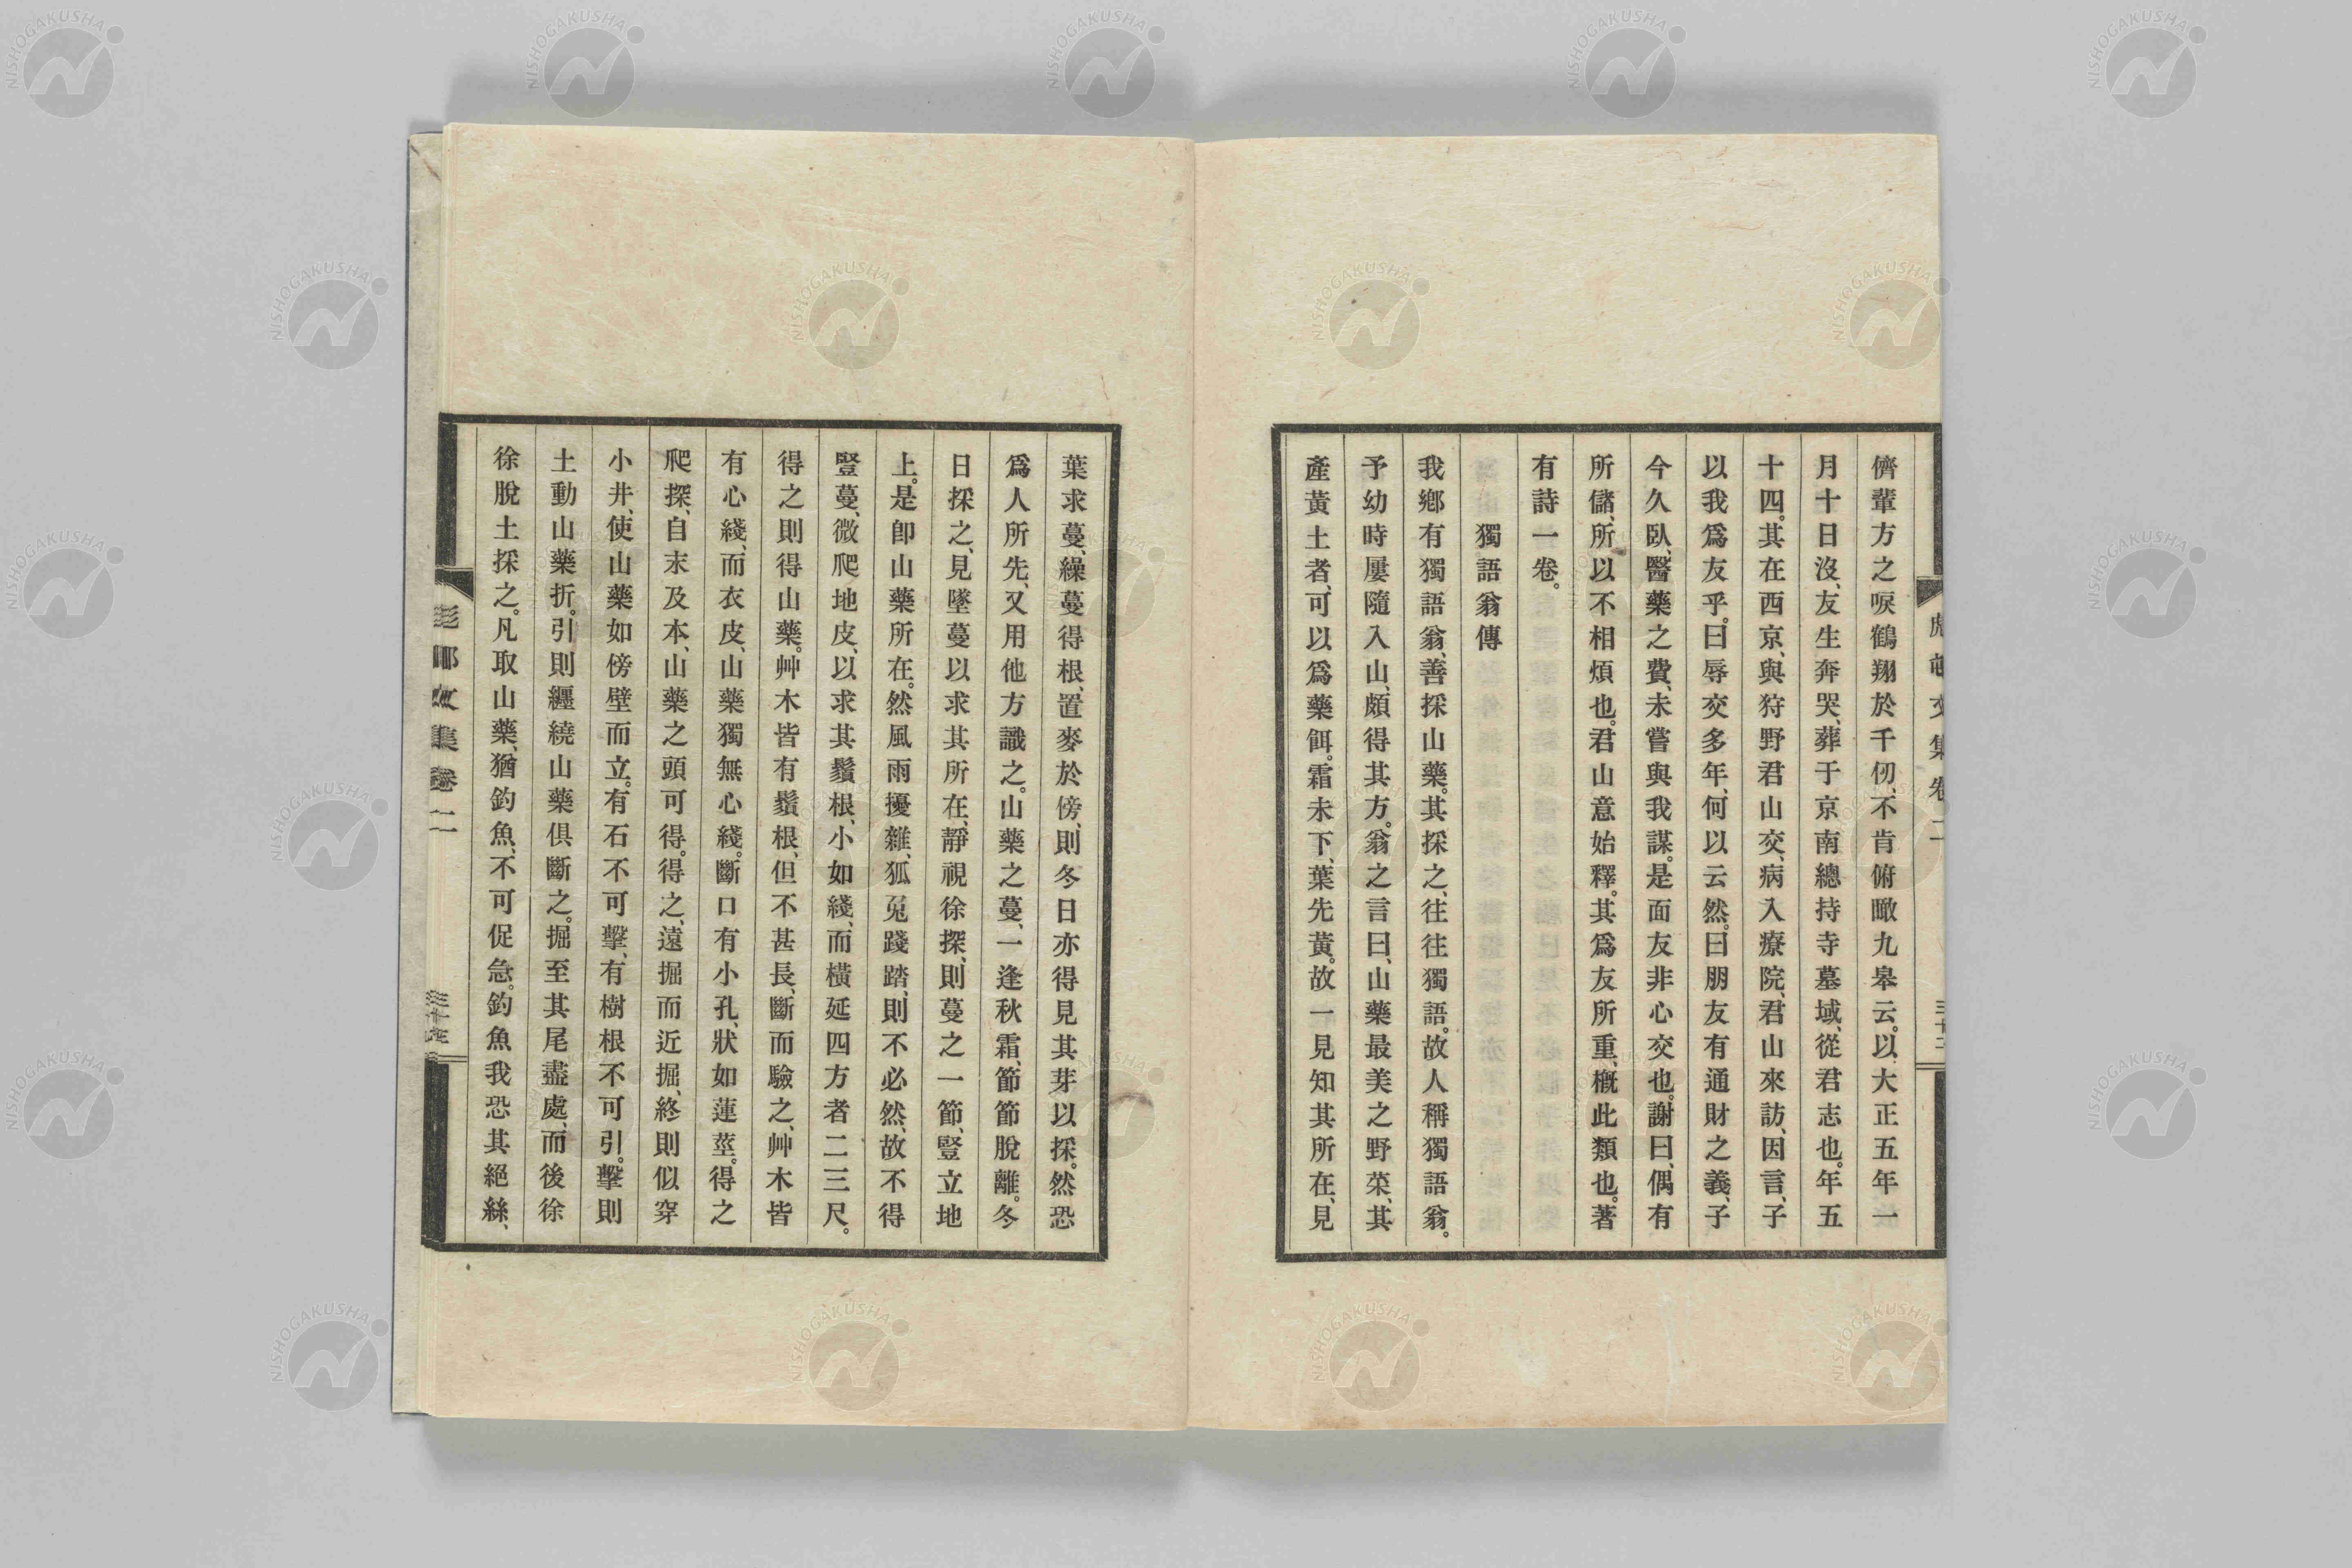 儕輩方之唳鶴翔於千仞、不肯俯瞰九皋云。以大正五年一
月十日沒、友生奔哭、葬于京南總持寺墓域、從君志也。年五
十四。其在西京、與狩野君山交、病入療院、君山來訪、因言、子
以我爲友乎。曰辱交多年、何以云然。曰朋友有通財之義、子
今久臥、醫藥之費、未嘗與我謀。是面友非心交也。謝曰、偶有
所儲、所以不相煩也。君山意始釋。其爲友所重、概此類也。著
有詩一卷。
獨語翁傳
我鄕有獨語翁、善採山藥。其採之、往往獨語。故人稱獨語翁。
予幼時屢隨入山、頗得其方。翁之言曰、山藥最美之野菜、其
產黃土者、可以爲藥餌。霜未下、葉先黃。故一見知其所在、見
葉求蔓、繰蔓得根、置麥於傍、則冬日亦得見其芽以採。然恐
爲人所先、又用他方識之。山藥之蔓、一逢秋霜、節節脫離。冬
日採之、見墜蔓以求其所在、靜視徐探、則蔓之一節、豎立地
上。是卽山藥所在。然風雨擾雜、狐兔踐踏、則不必然、故不得
豎蔓、微爬地皮、以求其鬚根、小如綫、而橫延四方者二三尺。
得之則得山藥。艸木皆有鬚根、但不甚長、斷而驗之、艸木皆
有心綫、而衣皮、山藥獨無心綫。斷口有小孔、狀如蓮莖。得之
爬探、自末及本、山藥之頭可得。得之、遠掘而近掘、終則似穿
小井、使山藥如傍壁而立。有石不可擊、有樹根不可引。擊則
土動山藥折。引則纒繞山藥俱斷之。掘至其尾盡處、而後徐
徐脫土採之。凡取山藥、猶釣魚、不可促急。釣魚我恐其絕絲、